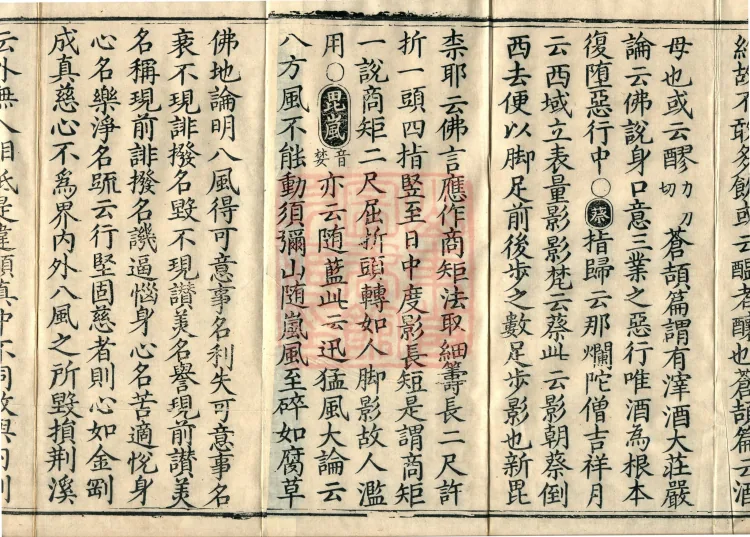 故不敢多飲或云醒者醲也蒼頡篇云酒
母也或云醪力刀切蒼頡篇謂有滓酒大莊嚴
論云佛說身口意三業之惡行唯酒為根本
復墮惡行中〇蔡指歸云那爛陀僧吉祥月
云西域立表量影影梵云蔡此云影朝蔡倒
西去便以脚足前後步之數足步影也新毘
柰耶云佛言應作商矩法取細籌長二尺許
折一頭四指竪至日中度影長短是謂商矩
一說商矩二尺屈折頭轉如人脚影故人濫
用〇毘嵐音婪亦云隨藍此云迅猛風大論云
八方風不能動須彌山隨嵐風至碎如腐草
佛地論明八風得可意事名利失可意事名
衰不現誹撥名毀不現讚美名譽現前讚美
名稱現前誹撥名譏逼惱身心名苦適悅身
心名樂淨名疏云行堅固慈者則心如金剛
成真慈心不為界內外八風之所毀損荊溪
云外無八相